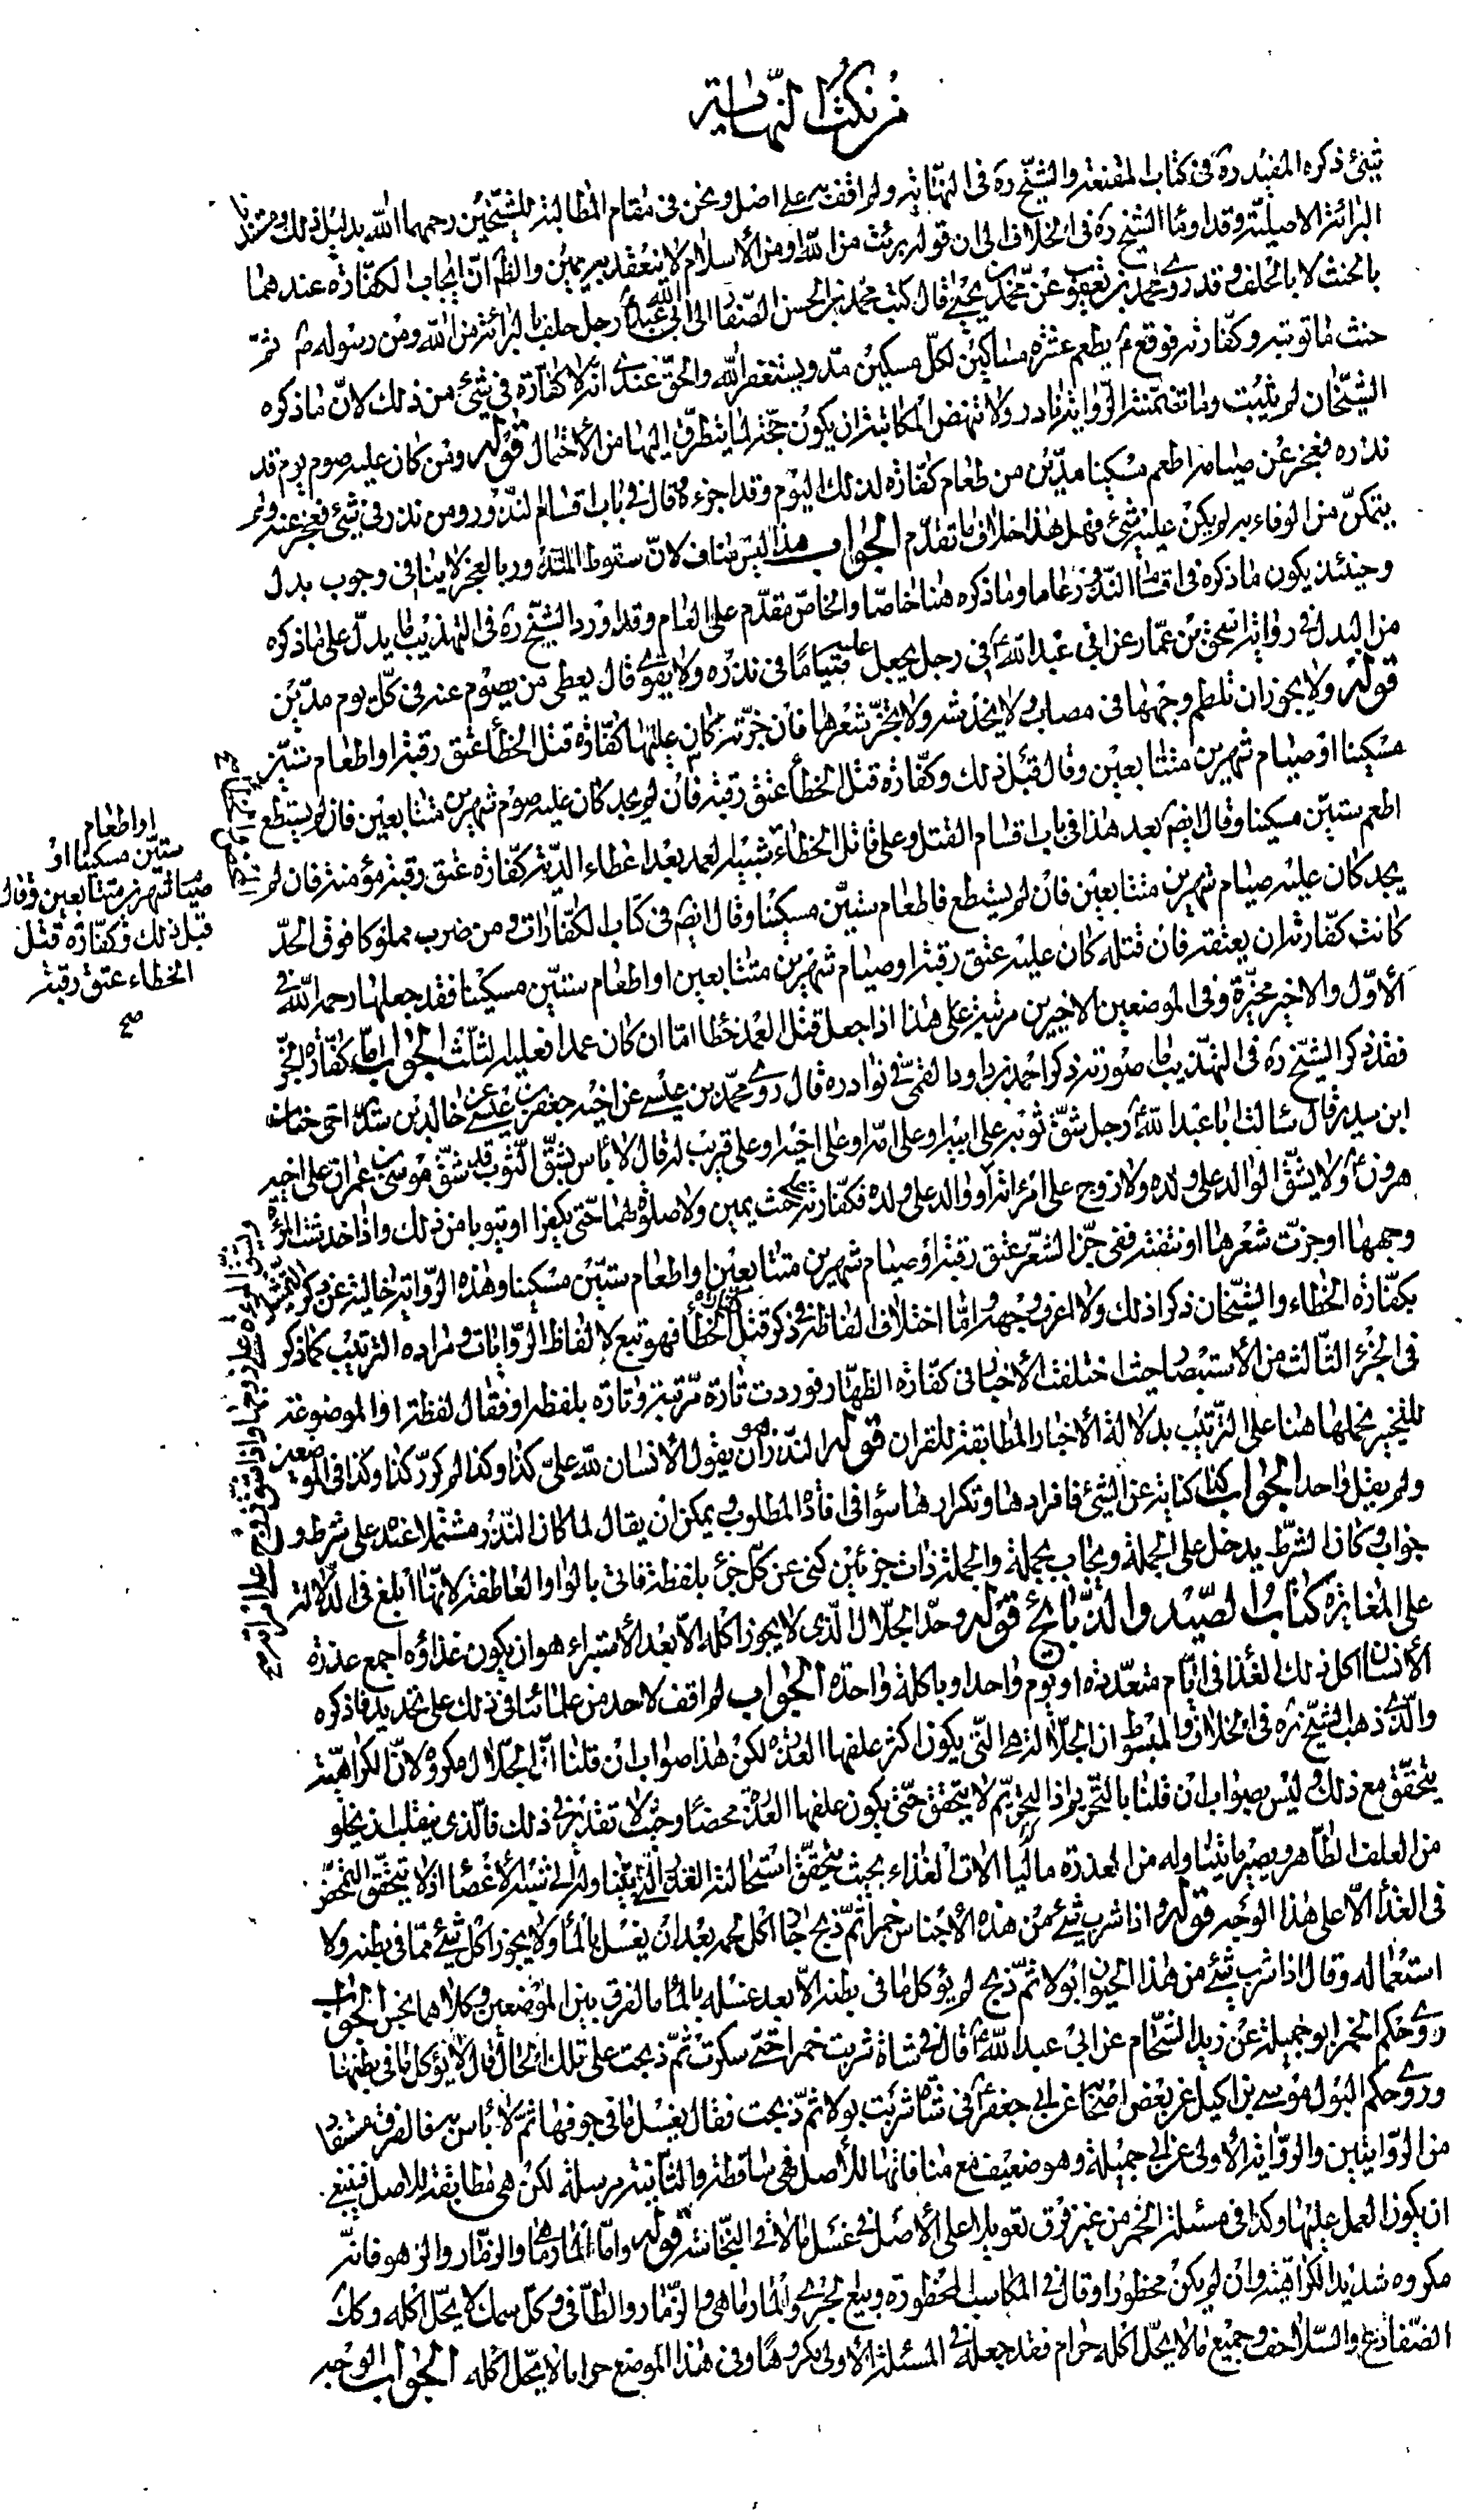 من نكت النهاية
شيئ ذكره المفيد ره في كتاب المقنعة والشيخ ره في النهاية ولم اقف به على اصل ونحن في مقام المطالبة للشيخين رحمهما الله بدليل ذلك ومتمسكنا
البرائة الاصلية وقد اومأ الشيخ ره في الخلاف الى ان قوله برئت من الله او من الاسلام لا ينعقد به يمين والظ ان ايجاب الكفارة عندهما
بالحنث لا بالحلف وقد روى محمد بن يعقوب عن محمد بن يحيى قال كتب محمد بن الحسن الصفار الى ابي عبد الله رجل حلف بالبرائة من الله ومن رسوله ص ثم
حنث ما توبته وكفارته فوقع ع يطعم عشرة مساكين لكل مسكين مد ويستغفر الله والحق عندى انه لا كفارة في شئ من ذلك لان ما ذكره
الشيخان لم يثبت وما تضمنته الرواية نادر ولا تنهض المكاتبة ان يكون حجة لما يتطرق اليها من الاحتمال قوله ومن كان عليه صوم يوم قد
نذره فعجز عن صيامه اطعم مسكينا مدين من طعام كفارة لذلك اليوم وقد اجزءه قال في باب اقسام النذور ومن نذر في شئ فعجز عنه ولم
يتمكن من الوفاء به لم يكن عليه شئ فهل هذا خلاف ما تقدم الجواب هذا ليس مناف لان سقوط المنذور بالعجز لا ينافى وجوب بدل
وحينئذ يكون ما ذكره في اقسام النذور عاما وما ذكره هنا خاصا والخاص مقدم على العام وقد اورد الشيخ ره في التهذيب ما يدل على ما ذكره
من البدل في رواية اسحق بن عمار عن ابي عبد الله ع في رجل يجعل عليه صياما في نذره ولا يقوى قال يعطى من يصوم عنه في كل يوم مدين
قوله ولا يجوز ان تلطم وجهها في مصاب ولا يخدشه ولا تجز شعرها فان جزته كان عليها كفارة قتل الخطأ عتق رقبة او اطعام ستين
مسكينا او صيام شهرين متتابعين وقال قبل ذلك وكفارة قتل الخطأ عتق رقبة فان لم يجد كان عليه صوم شهرين متتابعين فان لم يستطع
اطعم ستين مسكينا وقال ايضم بعد هذا في باب اقسام القتل وعلى قاتل الخطاء شبيه العمد بعد اعطاء الدية كفارة عتق رقبة مؤمنة فان لم
يجد كان عليه صيام شهرين متتابعين فان لم يستطع فاطعام ستين مسكينا وقال ايضم في كتاب الكفارات ومن ضرب مملوكا فوق الحد
كانت كفارته ان يعتقه فان قتله كان عليه عتق رقبة او صيام شهرين متتابعين او اطعام ستين مسكينا فقد جعلها رحمه الله في
الاول والاخير مخيرة وفي الموضعين الاخيرين مرتبة على هذا اذا جعل قتل العمد خطا اما ان كان عمدا فعليه الثلث الجواب اما كفارة الجز
فقد ذكر الشيخ ره في التهذيب ما صورته ذكر احمد بن داود القمى في نوادره قال روى محمد بن عيسى عن اخيه جعفر بن عيسى عن خالد بن سدير اخى حنان
ابن سدير قال سالت ابا عبد الله ع رجل شق ثوبه على ابيه او على امه او على اخيه او على قريب له قال لا بأس بشق الثوب قد شق موسى بن عمران على اخيه
هرون ع ولا يشق الوالد على ولده ولا زوج على امرئته او والد على ولده فكفارته حنث يمين ولا صلوة لهما حتى يكفرا او يتوبا من ذلك واذا خدشت المرئة
وجهها او جزت شعرها او نتفته ففي جز الشعر عتق رقبة او صيام شهرين متتابعين او اطعام ستين مسكينا وهذه الرواية خالية عن ذكر التشبيه
بكفارة الخطاء والشيخان ذكرا ذلك ولا اعرف وجهه واما اختلاف الفاظه في ذكر قتل الخطأ فهو تبع لالفاظ الروايات ومراده الترتيب كما ذكر
في الجزء الثالث من الاستبصار حيث اختلفت الاخبار في كفارة الظهار فوردت تارة مرتبة وتارة بلفظة او فقال لفظة او الموضوعة
للتخيير نحملها هنا على الترتيب بدلالة الاخبار المطابقة للقران قوله النذر هو ان يقول الانسان لله على كذا وكذا لم كرر كذا وكذا في الموضعين
ولم يقل واحد الجواب كذا كناية عن الشئ فافرادها وتكرارها سواء في افادة المطلوب ويمكن ان يقال لما كان النذر مشتملا عنده على شرط و
جواب وكان الشرط يدخل على الجملة ويجاب بجملة والجملة ذات جزئين كنى عن كل جزء بلفظة فاتى بالواو العاطفة لانها ابلغ في الدلالة
على المغايرة كتاب الصيد والذبائح قوله وحد الجلال الذى لا يجوز اكله الا بعد الاستبراء هو ان يكون غذاؤه اجمع عذرة
الانسان اكل ذلك الغذا في ايام متعددة او يوم واحد او باكلة واحدة الجواب لم اقف لاحد من علمائنا في ذلك على تحديد فا ذكره
والذى ذهب الشيخ ره في الخلاف والمبسوط ان الجلالة هى التى يكون اكثر علفها العذرة لكن هذا صواب ان قلنا ان الجلال مكروه لان الكراهية
يتحقق مع ذلك وليس بصواب ان قلنا بالتحريم اذ التحريم لا يتحقق حتى يكون علفها العذرة محضا وحيث لا تقدير في ذلك فالذى يغلب ان يخلو
من العلف الطاهر ويصير ما يتناوله من العذرة ماليا لالات الغذاء بحيث يتحقق استحالة الغذاء الذى يتناوله الى شبه الاعضا اذ لا يتحقق التمحض
في الغذا الا على هذا الوجه قوله واذا شرب شئ من هذه الاجناس خمرا ثم ذبح جاز اكل لحمه بعد ان يغسل بالماء ولا يجوز اكل شئ مما في بطنه ولا
استعماله وقال اذا شرب شئ من هذا الحيوان بولا ثم ذبح لم يؤكل ما في بطنه الا بعد غسله بالماء ما الفرق بين الموضعين وكلاهما نجس الجواب
روى حكم الخمر ابو جميلة عن زيد الشحام عن ابي عبد الله ع قال في شاة شربت خمرا حتى سكرت ثم ذبحت على تلك الحال قال لا يؤكل ما في بطنها
وروى حكم البول موسى بن اكيل عن بعض اصحابنا عن ابي جعفر ع في شاة شربت بولا ثم ذبحت فقال يغسل ما في جوفها ثم لا بأس به فالفرق مستفاد
من الروايتين والرواية الاولى عن ابي جميلة وهو ضعيف مع منافاتها للاصل فهي ساقطة والثانية مرسلة لكن هى مطابقة للاصل فينبغي
ان يكون العمل عليها وكذا في مسئلة الخمر من غير فرق تعويلا على الاصل في غسل ما لاقى النجاسة قوله واما المارماهى والزمار والزهو فانه
مكروه شديد الكراهية وان لم يكن محظورا وقال في المكاسب المحظورة وبيع الجرى والمارماهى والزمار والطافى وكل سمك لا يحل اكله وكك
الضفادع والسلاحف وجميع ما لا يحل اكله حرام فقد جعله في المسئلة الاولى مكروها وفي هذا الموضع حراما لا يحل اكله الجواب الوجه
او اطعام
ستين مسكينا او
صيام شهرين متتابعين وقال
قبل ذلك وكفارة قتل
الخطاء عتق رقبة
صح